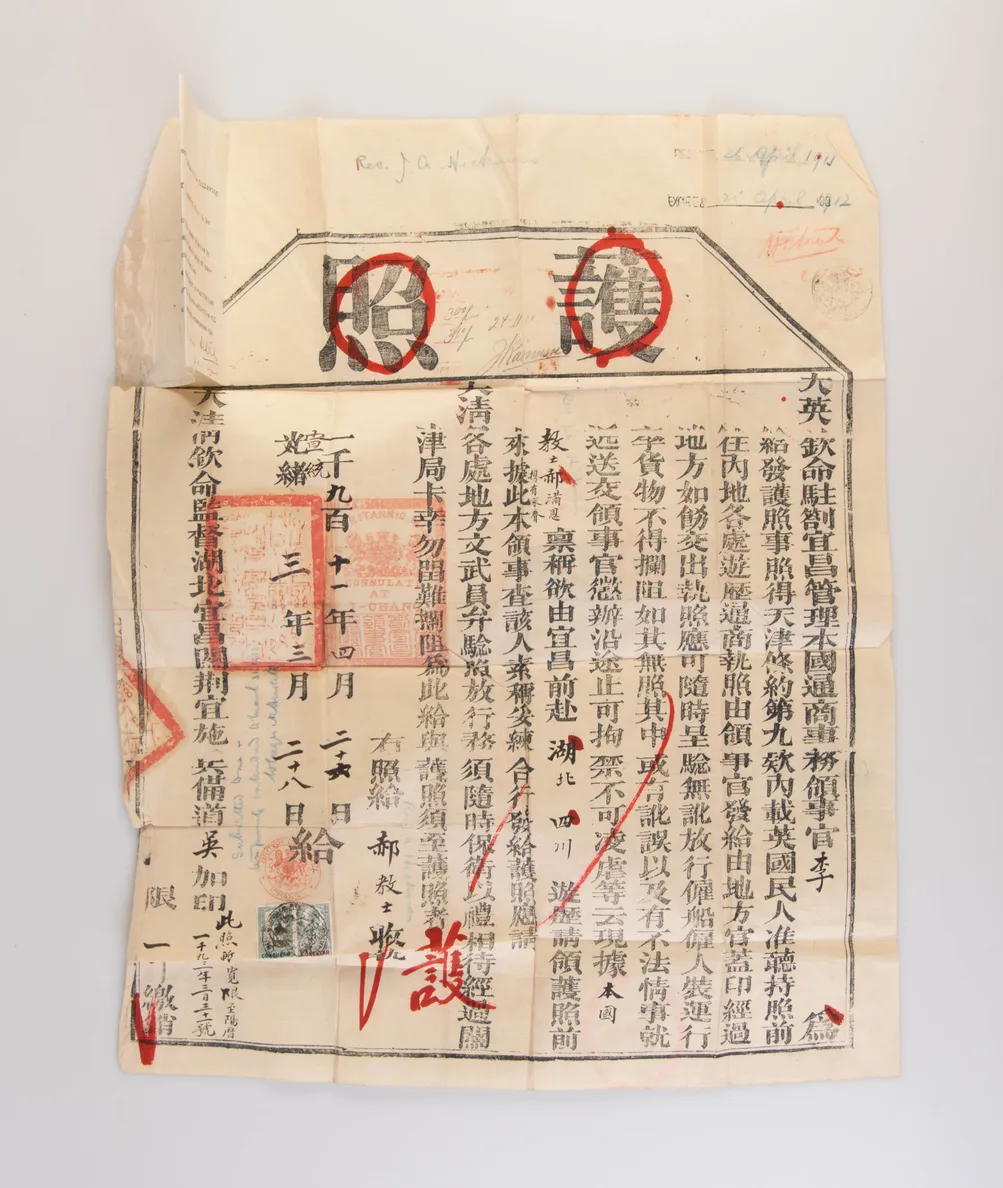 Rev. J. A.
26 April 1911
EXPIRES 25 April 1912
護照
大英欽命駐劄宜昌管理本國通商事務領事官李 為
給發護照事照得天津條約第九款內載英國民人准聽持照前
往內地各處遊歷通商執照由領事官發給由地方官蓋印經過
地方如飭交出執照應可隨時呈驗無訛放行僱船僱人裝運行
李貨物不得攔阻如其無照其中或有訛誤以及有不法情事就
近送交領事官懲辦沿途止可拘禁不可凌虐等云現據本國
教士郝滿恩 攜有家眷 稟稱欲由宜昌前赴湖北四川遊歷請領護照前
來據此本領事查該人素稱妥練合行發給護照應請
大清各處地方文武員弁驗照放行務須隨時保衛以禮相待經過關
津局卡幸勿留難攔阻為此給與護照須至護照者
右照給 郝教士 收
一千九百十一年四月二十六日
給
光緒 宣統 三年三月二十八日
大清欽命監督湖北宜昌關荊宜施兵備道吳加印
此照所寬限至陽曆
一千九百一十二年三月三十號
限 一年繳銷
護
BRITANNIC
CONSULATE
AT
ICHANG